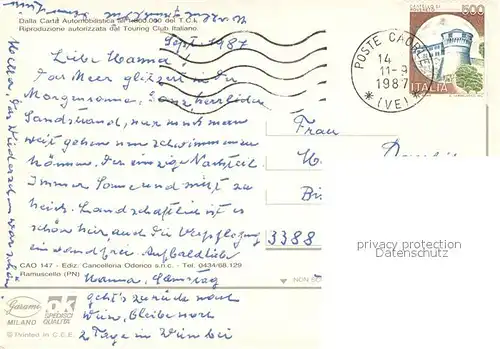 Dalla Carta Automobilistica al 1:800.000 del T.C.I.
Riproduzione autorizzata dal Touring Club Italiano.
Sept. 1987
Liebe Hanna!
Das Meer glitzert in der
Morgensonne. Ganz herrlicher
Sandstrand, nur muß man
weit gehen um schwimmen zu
können. Der einzige Nachteil.
Immer Sonne und nicht zu
heiß. Landschaftlich ist es
schön hier auch die Verpflegung
einwandfrei. Auf bald liebe
Hanna, Samstag
geht's zurück nach
Wien, bleibe noch
2 Tage in Wien bei
POSTE CAORLE
14
11-9
1987
(VE)
500
ITALIA
Frau
3388
privacy protection
Datenschutz
CAO 147 - Ediz: Cancelleria Oderico s.n.c. - Tel. 0434/68.129
Ramuscello (PN)
NON
Garami
MILANO
SPEDISCI
QUALITÀ
© Printed in C.E.E.